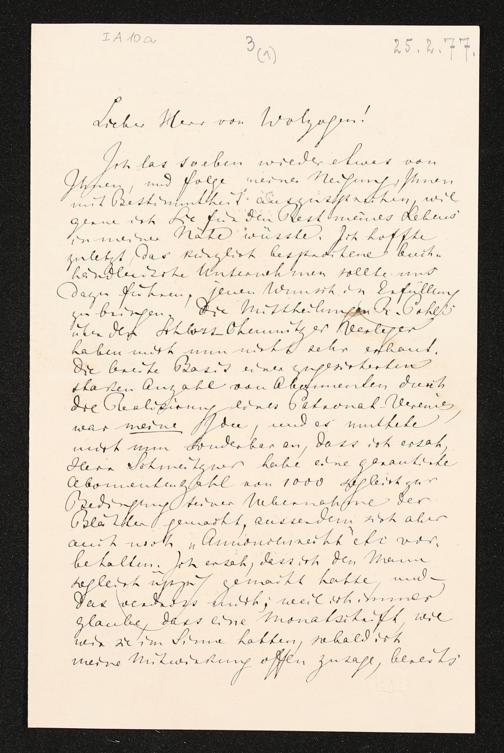 I A 10a
3
(1)
25.2.77.
Lieber Herr von Wolzogen!
Ich las soeben wieder etwas von
Ihnen, und folge meiner Neigung, Ihnen
mit Bestimmtheit auszusprechen, wie
gerne ich Sie für den Rest meines Lebens
in meiner Nähe wüsste. Ich hoffte
zuletzt das kürzlich besprochene buch-
händlerische Unternehmen sollte uns
dazu führen, jenen Wunsch in Erfüllung
zu bringen. Die Mittheilungen
über den Schloss Chemnitzer Verleger
haben mich nun nicht sehr erbaut.
Die breite Basis einer zugesicherten
starken Anzahl von Abonnenten durch
die Realisirung eines Patronat-Vereines,
war meine Idee, und es muthete
mich nun sonderbar an, dass ich ersah,
Herr Schmeitzner habe eine garantirte
Abonnentenzahl von 1000 sogleich zur
Bedingung seiner Uebernahme der
Blätter gemacht, ausserdem sich aber
auch noch "Annoncenrecht" etc vor-
behalten. Ich ersah, dass ich den Mann
sogleich gemacht hatte, und
das verdross mich; weil ich immer
glaube, dass eine Monatsschrift, wie
wir sie im Sinne hatten, sobald ich
meine Mitwirkung offen zusage, bereits